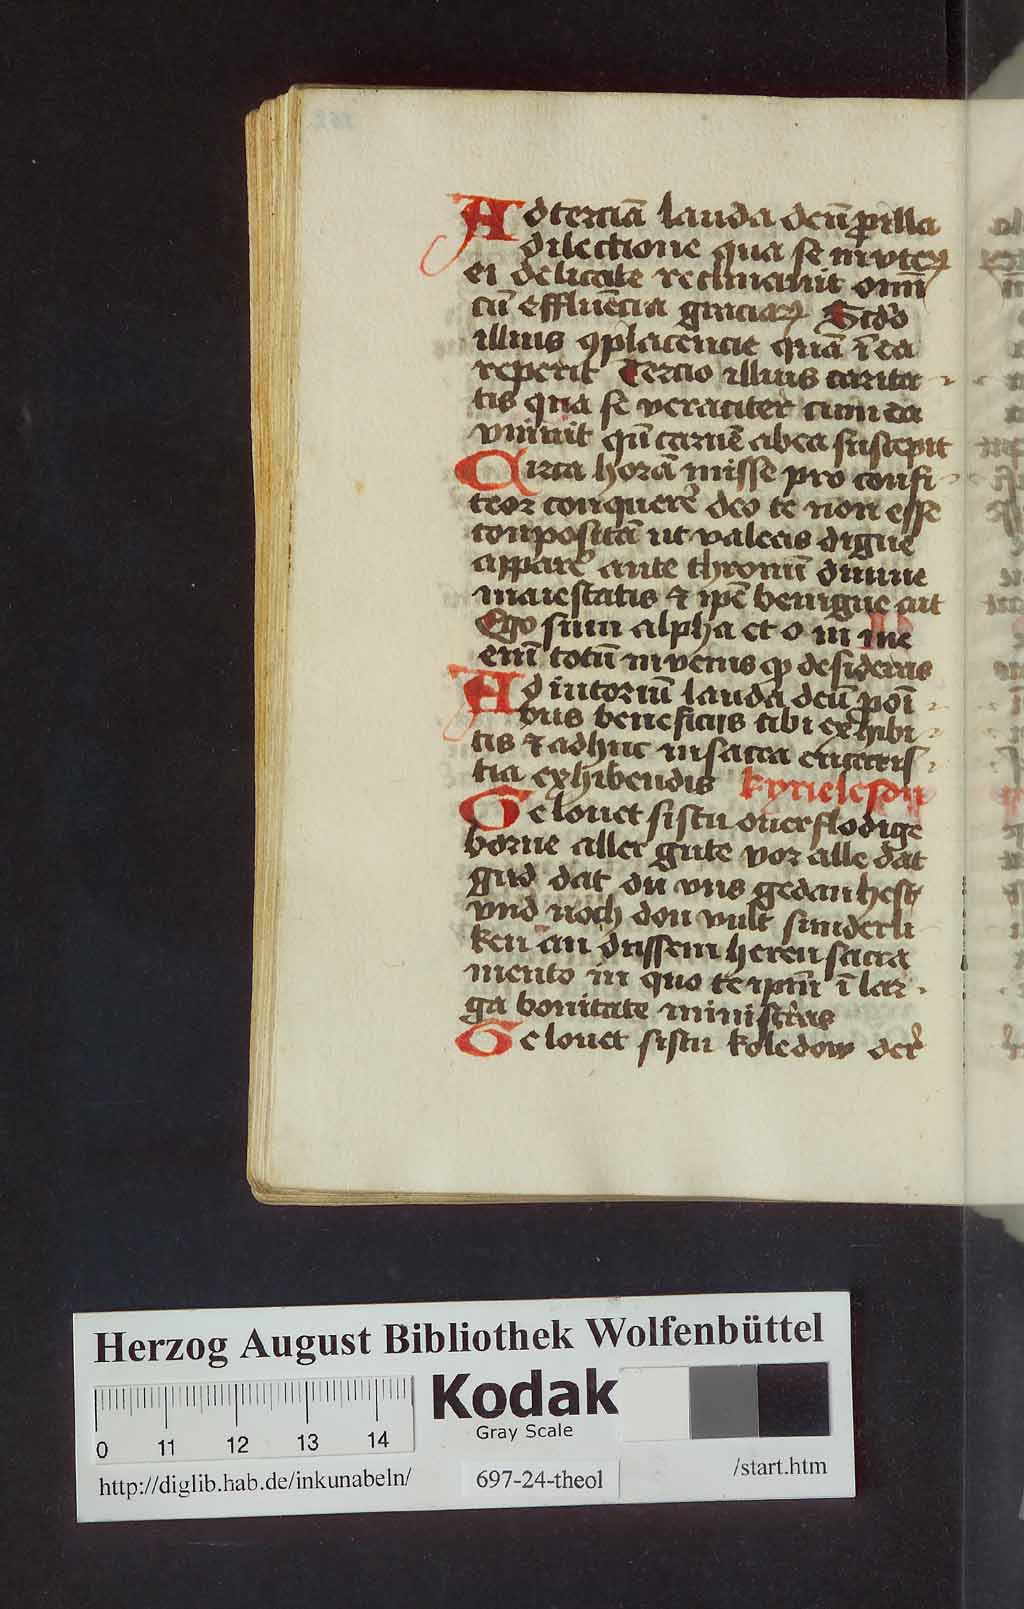 Ad terciā lauda deū ꝑ illa
dilectione qua se in vterꝫ
ei delicate reclinauit omī
cū effluēcia graciaꝝ Scdo̓
illius ꝯplacencie quā ī ea
reperit Tercio illius carita
tis qua se veraciter cum ea
vniuit qn̄ carnē ab ea suscepit
Circa horā misse pro confi
teor conquerer̄ deo te non esse
conpositā ut valeas digne
apparer̄ ante thronū diuine
maiestatis ⁊ ip̄e benigne ait
Ego sum alpha et o in me
enī totū invenis qͥ desideras
Ad intorium lauda deū ꝑ oī
bus beneficijs tibi exhibi
tis ⁊ adhuc in sacra eucaris
tia exhibendis kyrieleson
Gelouet sistu ouerflodige
borne aller gute vor alle dat
gud dat du vns gedan hest
vnd noch don vult sunderli
ken an dussem heren sacra
mento in quo te ip̄m ī lar
ga bonitate ministras
Gelouet sistu koledow der̄
Herzog August Bibliothek Wolfenbüttel
Kodak
Gray Scale
0 11 12 13 14
http://diglib.hab.de/inkunabeln/
697-24-theol
/start.htm